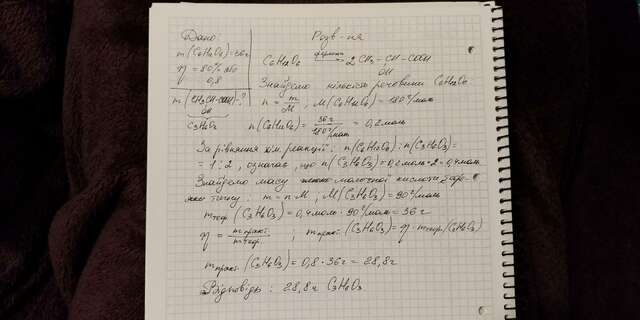 Дано:
m(C6H12O6)=36г
η = 80% або
0,8
m(CH3CH-COOH)-?
OH
C3H6O3
Розв-ня
C6H12O6 ферменти→ 2CH3-CH-COOH
OH
Знайдемо кількість речовини C6H12O6
n = m/M ; M(C6H12O6) = 180 г/моль
n(C6H12O6) = 36г/180 г/моль = 0,2 моль
За рівнянням хім. реакції: n(C6H12O6) : n(C3H6O3) =
= 1:2, означає, що n(C3H6O3)=0,2 моль•2=0,4 моль
Знайдемо масу молочної кислоти
: m = n·M ; M(C3H6O3) = 90 г/моль
mтеор. (C3H6O3) = 0,4моль · 90 г/моль = 36 г
η = mпракт./mтеор. ; mпракт. (C3H6O3) = η · mтеор. (C3H6O3)
mпракт. (C3H6O3) = 0,8 · 36г = 28,8г
Відповідь : 28,8г C3H6O3